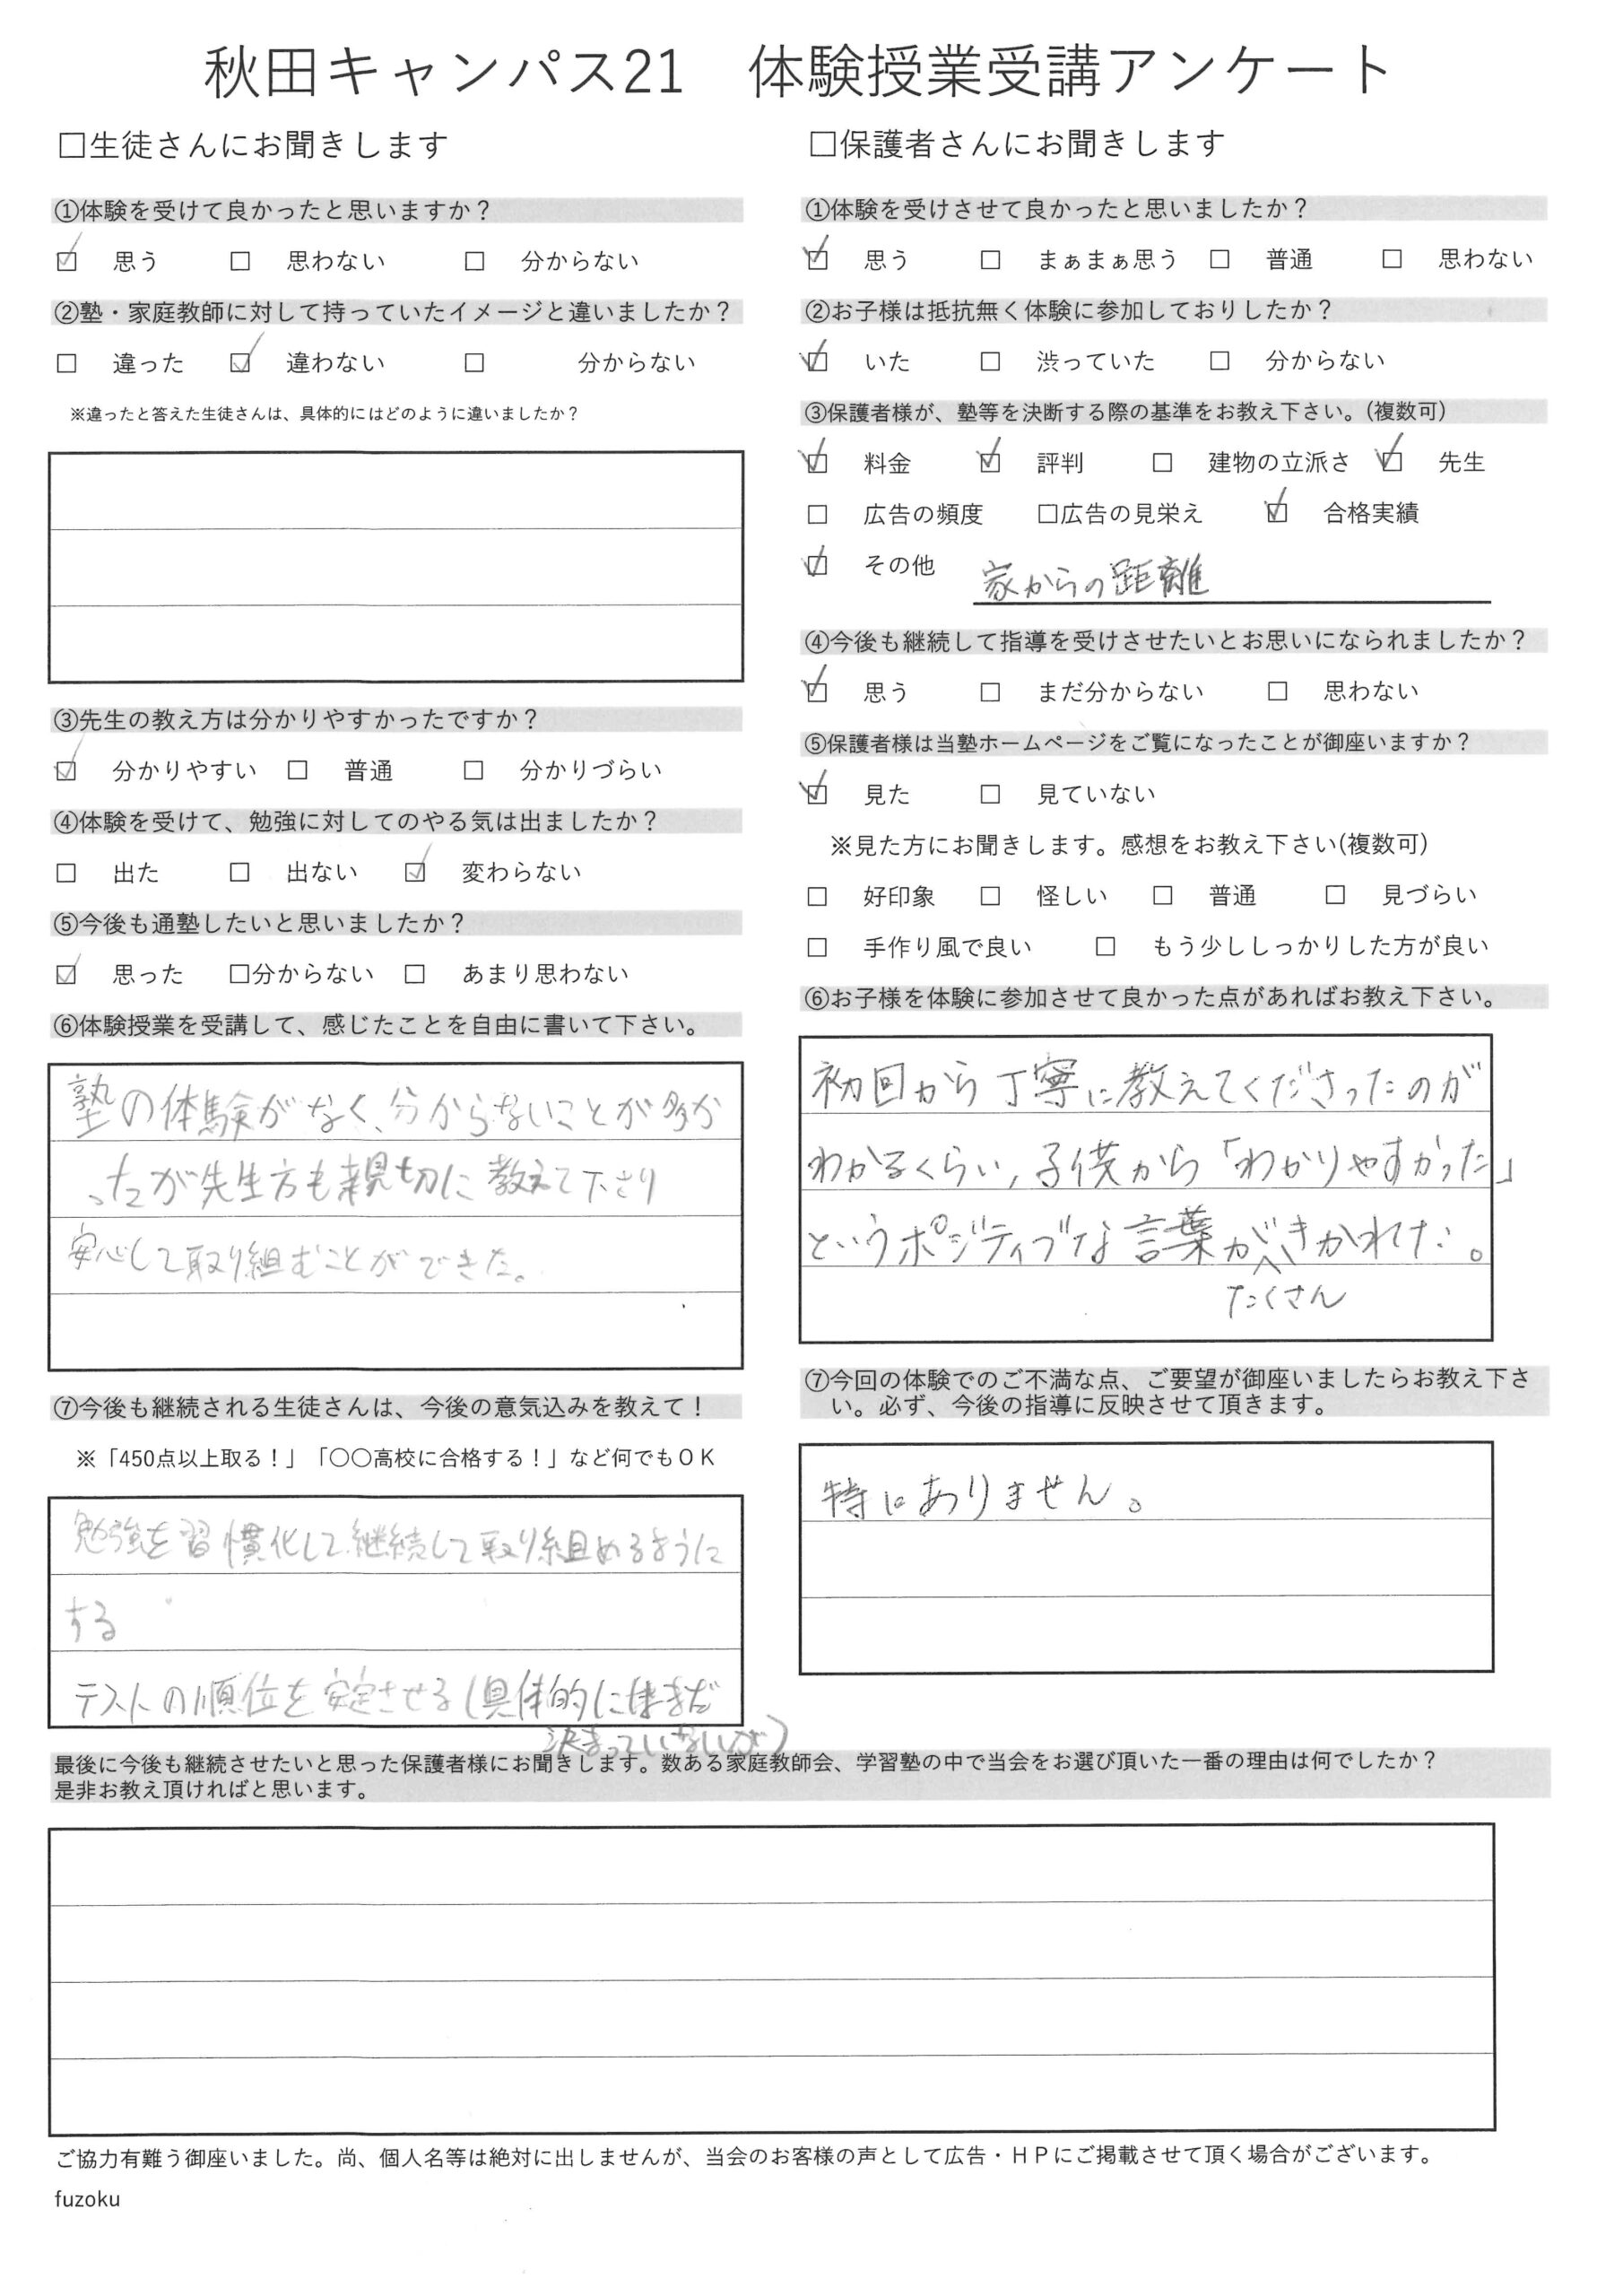 秋田キャンパス21　体験授業受講アンケート
□生徒さんにお聞きします
①体験を受けて良かったと思いますか？
☑ 思う　□ 思わない　□ 分からない
②塾・家庭教師に対して持っていたイメージと違いましたか？
□ 違った　☑ 違わない　□ 分からない
※違ったと答えた生徒さんは、具体的にはどのように違いましたか？
③先生の教え方は分かりやすかったですか？
☑ 分かりやすい　□ 普通　□ 分かりづらい
④体験を受けて、勉強に対してのやる気は出ましたか？
□ 出た　□ 出ない　☑ 変わらない
⑤今後も通塾したいと思いましたか？
☑ 思った　□分からない　□ あまり思わない
⑥体験授業を受講して、感じたことを自由に書いて下さい。
塾の体験がなく、分からないことが多か
ったが先生方も親切に教えて下さり
安心して取り組むことができた。
⑦今後も継続される生徒さんは、今後の意気込みを教えて！
※「450点以上取る！」「〇〇高校に合格する！」など何でもＯＫ
勉強を習慣化して継続して取り組めるように
する
テストの順位を安定させる(具体的にはまだ
決まっていないが)
□保護者さんにお聞きします
①体験を受けさせて良かったと思いましたか？
☑ 思う　□ まぁまぁ思う　□ 普通　□ 思わない
②お子様は抵抗無く体験に参加しておりしたか？
☑ いた　□ 渋っていた　□ 分からない
③保護者様が、塾等を決断する際の基準をお教え下さい。(複数可)
☑ 料金　☑ 評判　□ 建物の立派さ　☑ 先生
□ 広告の頻度　□広告の見栄え　☑ 合格実績
☑ その他　家からの距離
④今後も継続して指導を受けさせたいとお思いになられましたか？
☑ 思う　□ まだ分からない　□ 思わない
⑤保護者様は当塾ホームページをご覧になったことが御座いますか？
☑ 見た　□ 見ていない
※見た方にお聞きします。感想をお教え下さい(複数可)
□ 好印象　□ 怪しい　□ 普通　□ 見づらい
□ 手作り風で良い　□ もう少ししっかりした方が良い
⑥お子様を体験に参加させて良かった点があればお教え下さい。
初回から丁寧に教えてくださったのが
わかるくらい，子供から「わかりやすかった」
というポジティブな言葉がきかれた。
たくさん
⑦今回の体験でのご不満な点、ご要望が御座いましたらお教え下さ
い。必ず、今後の指導に反映させて頂きます。
特にありません。
最後に今後も継続させたいと思った保護者様にお聞きします。数ある家庭教師会、学習塾の中で当会をお選び頂いた一番の理由は何でしたか？
是非お教え頂ければと思います。
ご協力有難う御座いました。尚、個人名等は絶対に出しませんが、当会のお客様の声として広告・ＨＰにご掲載させて頂く場合がございます。
fuzoku